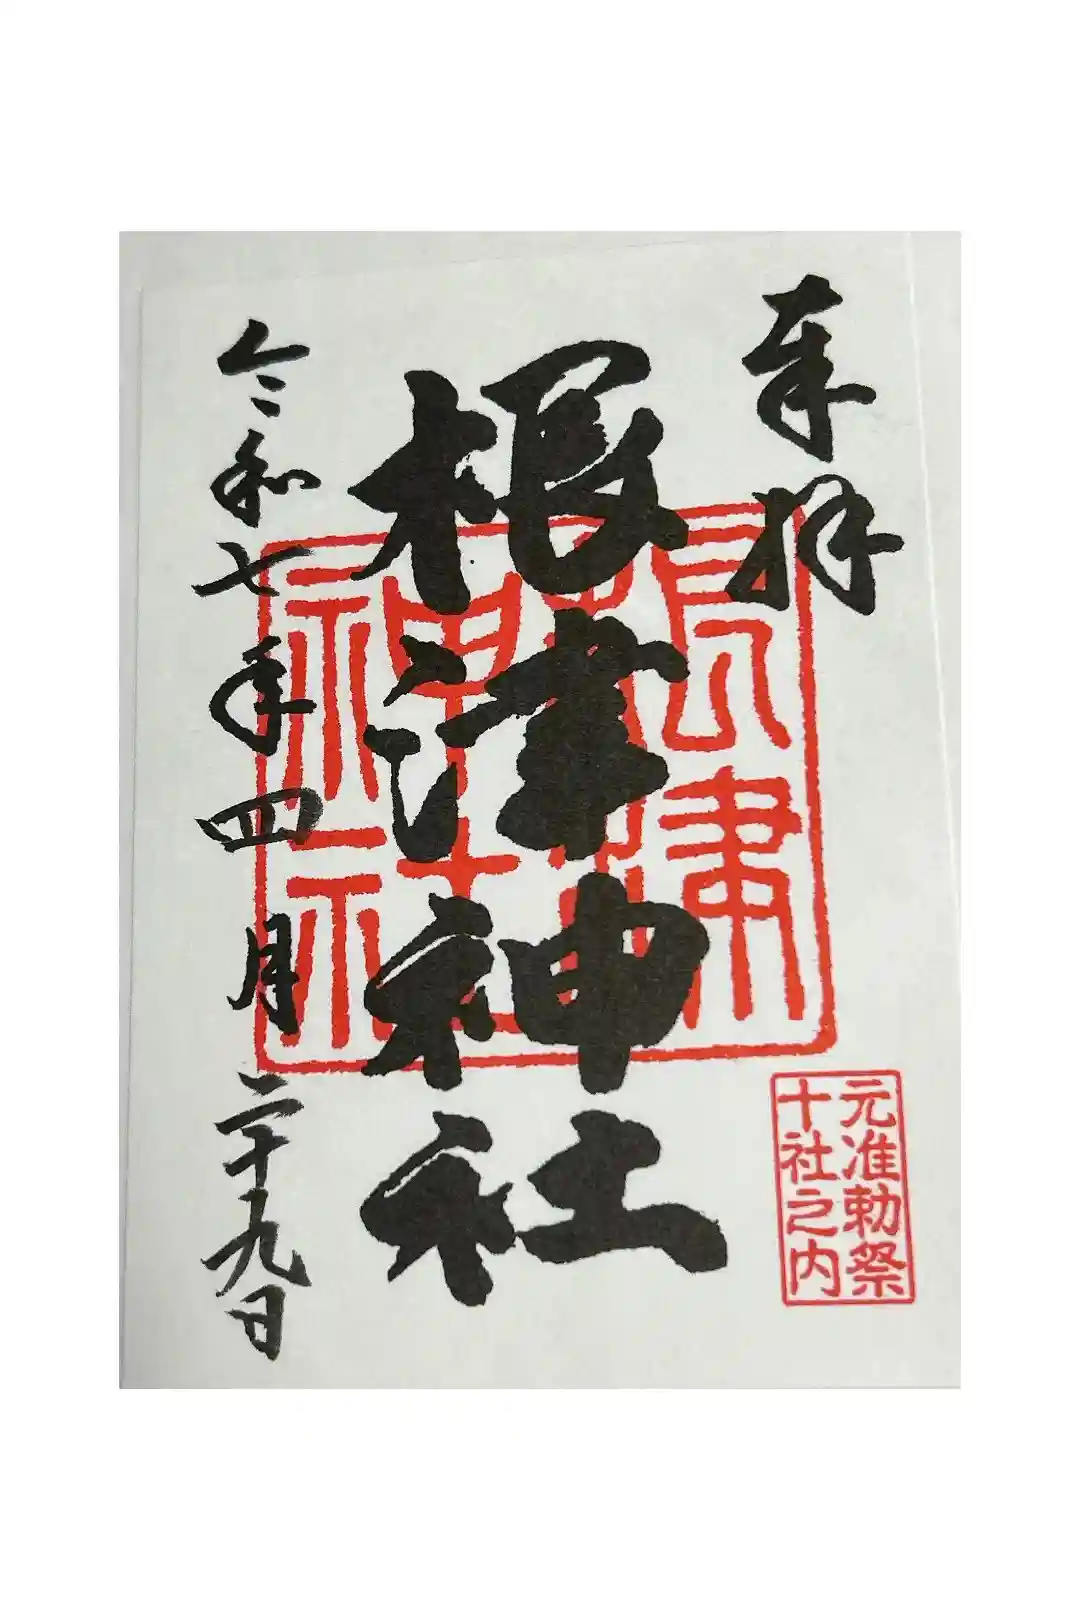 奉拝
根津神社
令和七年四月二十九日
根津神社
元准勅祭
十社之内